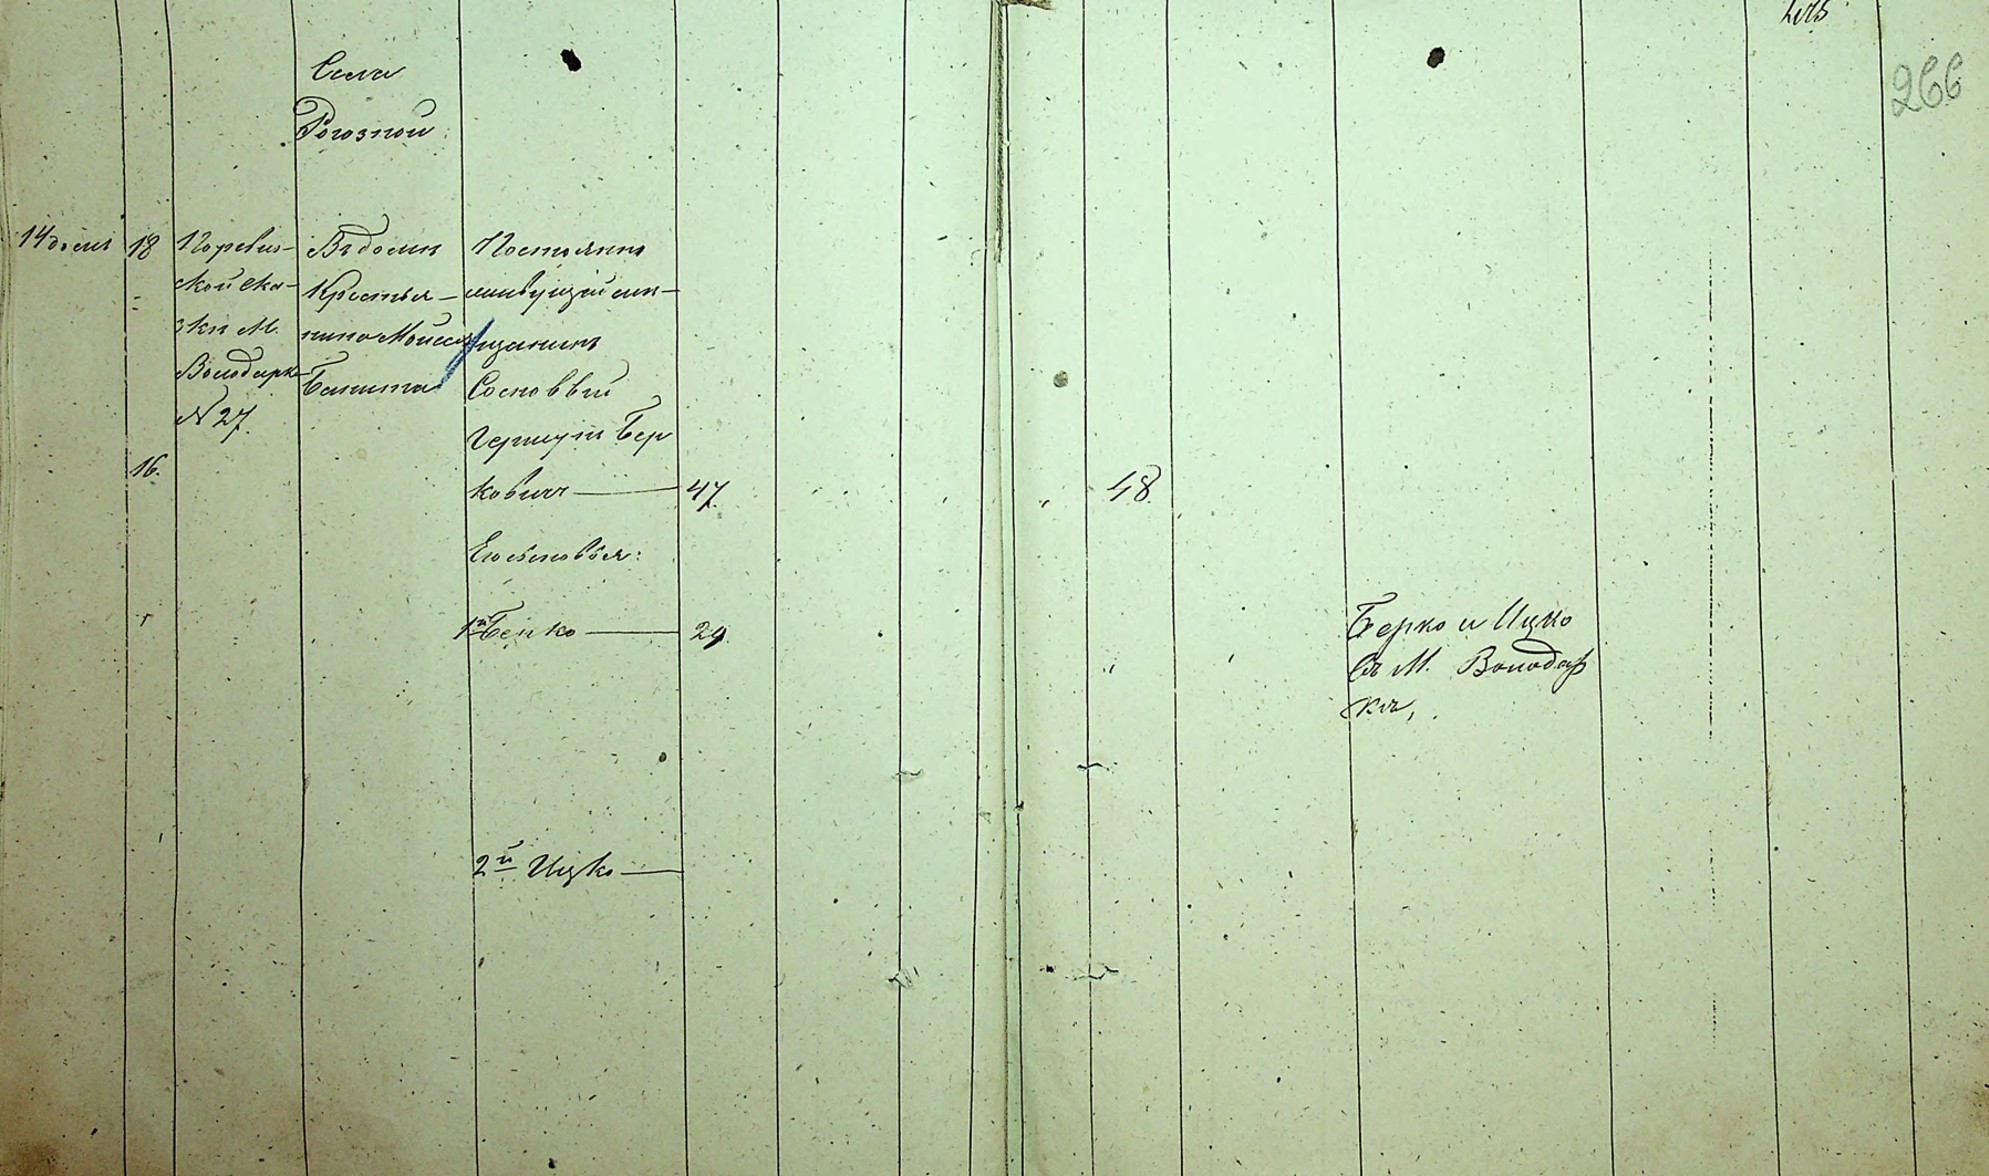 266
Села
Рогозной
14 доля
18
По ревиз-
ской ска-
зки М.
Володарка
№ 27.
16.
Въ доме
Крестья-
нина Моисея
Постоянно
живущій ме-
щанинъ
Гершунъ Бер
ковичъ 47
48
Его сыновья:
1й Берко 29
Берко и Ицко
въ М. Володар
ке,
2й Ицко